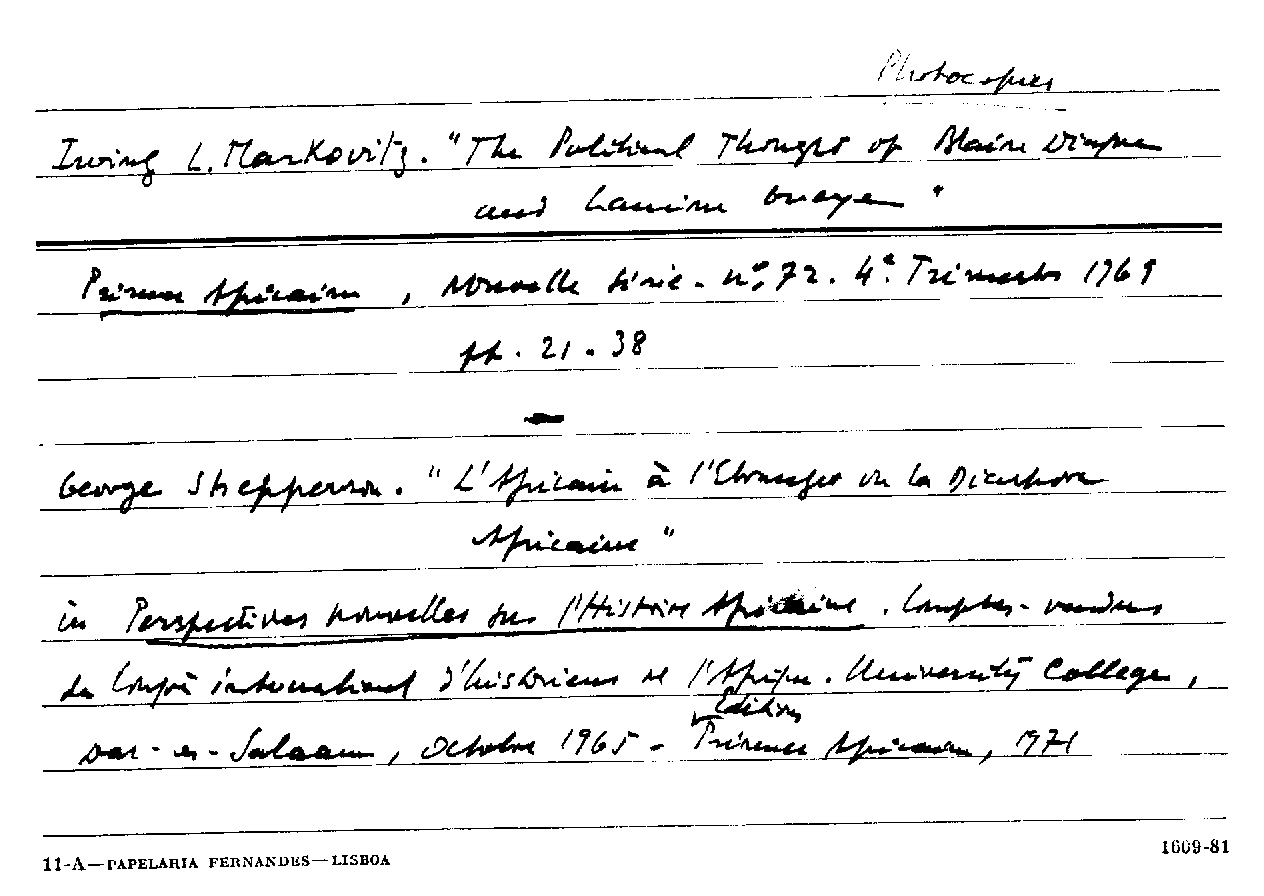 Photocopies
Irving L. Markovitz. "The Political Thought of Blaise Diagne
and Lamine Gueye"
Présence Africaine, Nouvelle Série - nº 72. 4º Trimestre 1969
pp. 21-38
George Shepperson. "L'Africain à l'Etranger ou la Diaspora
Africaine"
in Perspectives nouvelles sur l'Histoire Africaine. Comptes-rendus
du Congrès international d'historiens de l'Afrique. University College,
Editions
Dar-es-Salaam, Octobre 1965 - Présence Africaine, 1971
11-A—PAPELARIA FERNANDES—LISBOA
1669-81